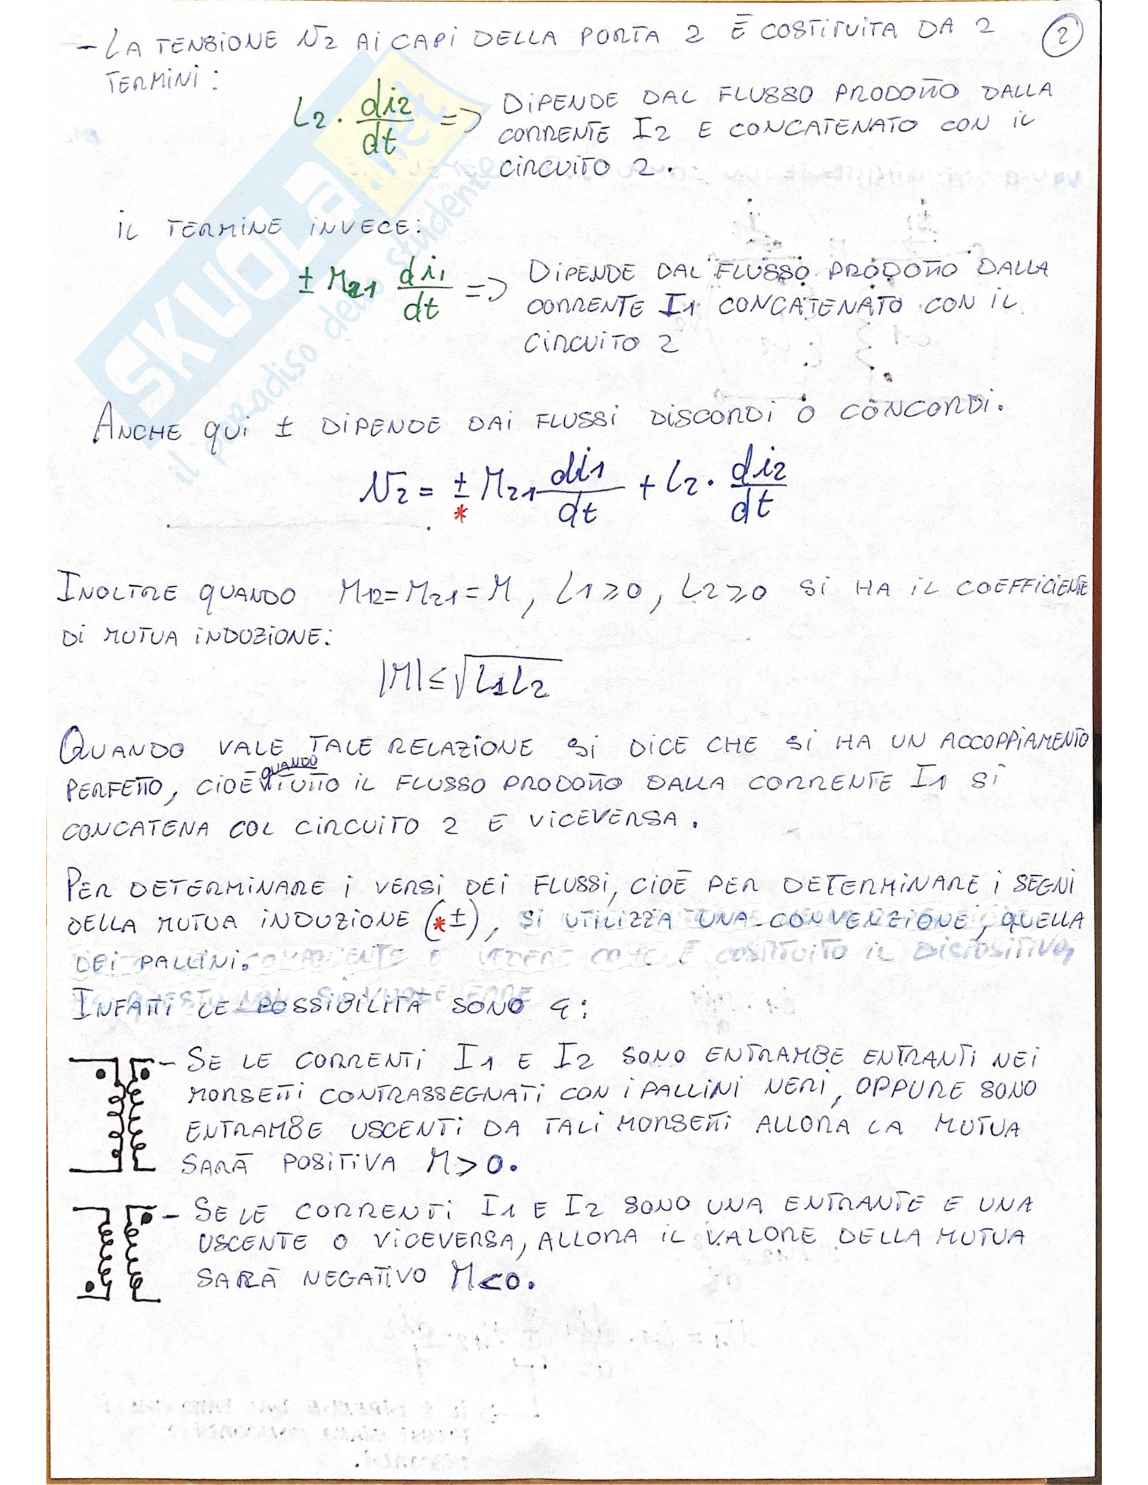 - LA TENSIONE V2 AI CAPI DELLA PORTA 2 È COSTITUITA DA 2
2
TERMINI:
L2 · di2/dt => DIPENDE DAL FLUSSO PRODOTTO DALLA
CORRENTE I2 E CONCATENATO CON IL
CIRCUITO 2.
IL TERMINE INVECE:
± M21 di1/dt => DIPENDE DAL FLUSSO PRODOTTO DALLA
CORRENTE I1 CONCATENATO CON IL
CIRCUITO 2
ANCHE QUI ± DIPENDE DAI FLUSSI DISCORDI O CONCORDI.
V2 = ± M21 di1/dt + L2 · di2/dt
*
INOLTRE QUANDO M12=M21=M, L1≥0, L2≥0 SI HA IL COEFFICIENTE
DI MUTUA INDUZIONE:
|M| ≤ √L1L2
QUANDO VALE TALE RELAZIONE SI DICE CHE SI HA UN ACCOPPIAMENTO
PERFETTO, CIOÈ QUANDO TUTTO IL FLUSSO PRODOTTO DALLA CORRENTE I1 SI
CONCATENA COL CIRCUITO 2 E VICEVERSA.
PER DETERMINARE I VERSI DEI FLUSSI, CIOÈ PER DETERMINARE I SEGNI
DELLA MUTUA INDUZIONE (*±), SI UTILIZZA UNA CONVENZIONE, QUELLA
DEI PALLINI.
INFATTI LE POSSIBILITÀ SONO 4:
- SE LE CORRENTI I1 E I2 SONO ENTRAMBE ENTRANTI NEI
MORSETTI CONTRASSEGNATI CON I PALLINI NERI, OPPURE SONO
ENTRAMBE USCENTI DA TALI MORSETTI ALLORA LA MUTUA
SARÀ POSITIVA M>0.
- SE LE CORRENTI I1 E I2 SONO UNA ENTRANTE E UNA
USCENTE O VICEVERSA, ALLORA IL VALORE DELLA MUTUA
SARÀ NEGATIVO M<0.
SKUOLA.net
il paradiso dello studente